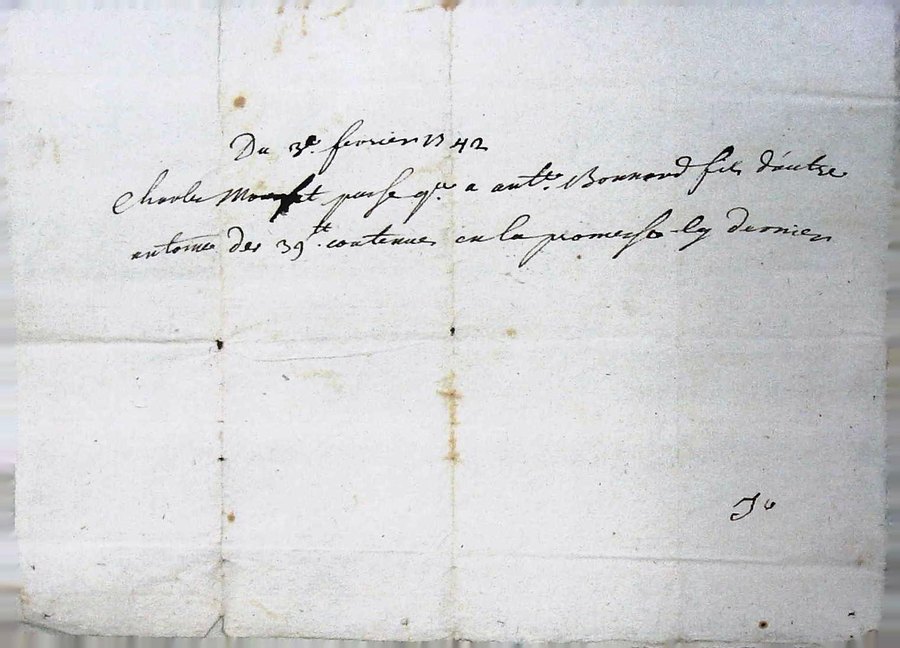 Du 3e. fevrier 1742
Charles passe qce. a antne. Bonnard fils d'autre
antoine des 39tt. contenues en la promesse cy dernier